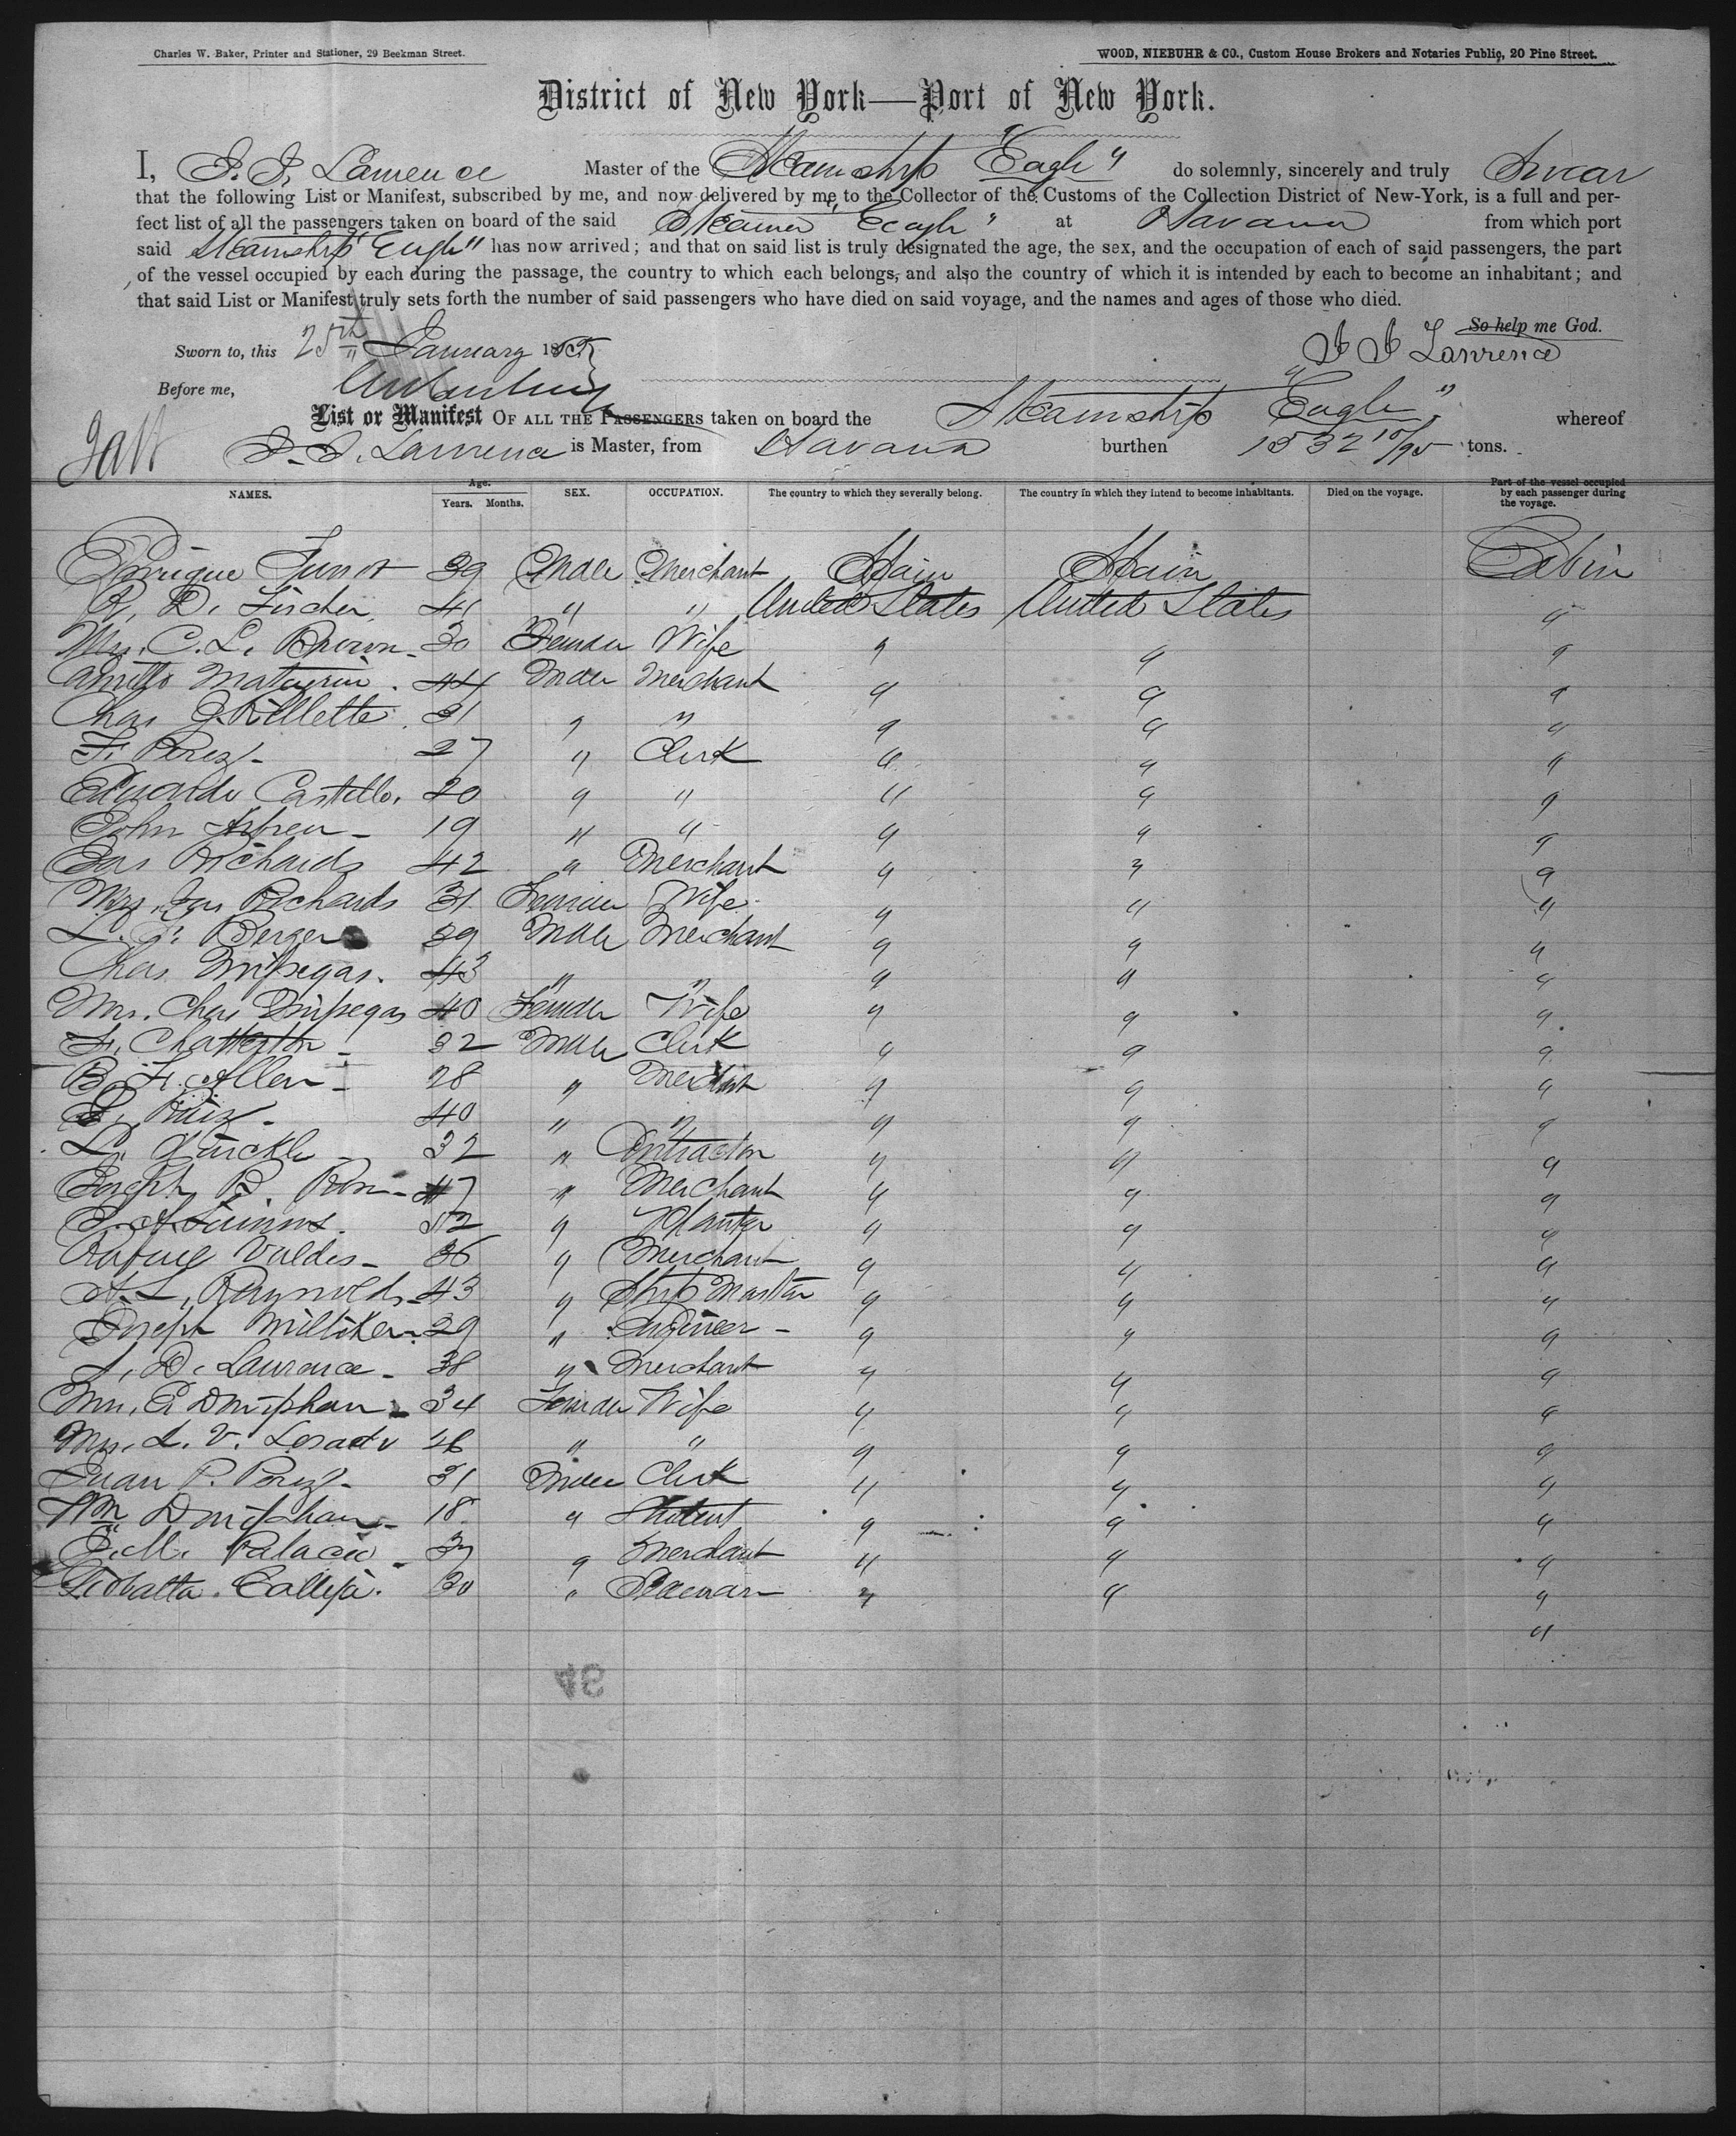 Charles W. Baker, Printer and Stationer, 29 Beekman Street.
WOOD, NIEBUHR & CO., Custom House Brokers and Notaries Public, 20 Pine Street.
District of New York—Port of New York.
I, Lawrence Master of the Steamship "Eagle" do solemnly, sincerely and truly Swear
that the following List or Manifest, subscribed by me, and now delivered by me to the Collector of the Customs of the Collection District of New-York, is a full and per-
fect list of all the passengers taken on board of the said Steamer "Eagle" at Havana from which port
said Steamship "Eagle" has now arrived; and that on said list is truly designated the age, the sex, and the occupation of each of said passengers, the part
of the vessel occupied by each during the passage, the country to which each belongs, and also the country of which it is intended by each to become an inhabitant; and
that said List or Manifest truly sets forth the number of said passengers who have died on said voyage, and the names and ages of those who died.
So help me God.
Sworn to, this 25th January 18
Lawrence
Before me,
List or Manifest OF ALL THE PASSENGERS taken on board the Steamship "Eagle" whereof
Lawrence is Master, from Havana burthen 1532 10/95 tons.
NAMES. Age. Years. Months. SEX. OCCUPATION. The country to which they severally belong. The country in which they intend to become inhabitants. Died on the voyage. Part of the vessel occupied by each passenger during the voyage.
Enrique 39 Male Merchant Spain Spain Cabin
D. Fischer 41 " " United States United States "
Mrs. C. L. Brown 30 Female Wife " " "
44 Male Merchant " " "
Chas 31 " " " " "
F. Perez 27 " Clerk " " "
Eduardo Castello. 20 " " " " "
John Abreu 19 " " " " "
Jas Richards 42 " Merchant " " "
Mrs. Jas Richards 31 Female Wife " " "
L. Berger 39 Male Merchant " " "
Chas 43 " " " " "
Mrs. Chas 40 Female Wife " " "
F. Chatterton 32 Male Clerk " " "
B. F. Allen 28 " Merchant " " "
Ruiz 40 " " " " "
L. 32 " Contractor " " "
Joseph R. 47 " Merchant " " "
52 " Planter " " "
Rafael Valdes 36 " Merchant " " "
A. L. Raynolds 43 " Ship Master " " "
Joseph Milliken 29 " Engineer " " "
D. Lawrence 38 " Merchant " " "
Mrs. Doniphan 34 Female Wife " " "
Mrs. L. V. " " " " "
Juan P. Perez 31 Male Clerk " " "
Wm Doniphan 18 " Student " " "
M. Palacio " Merchant " " "
Calleja. 30 " " " "
"
34